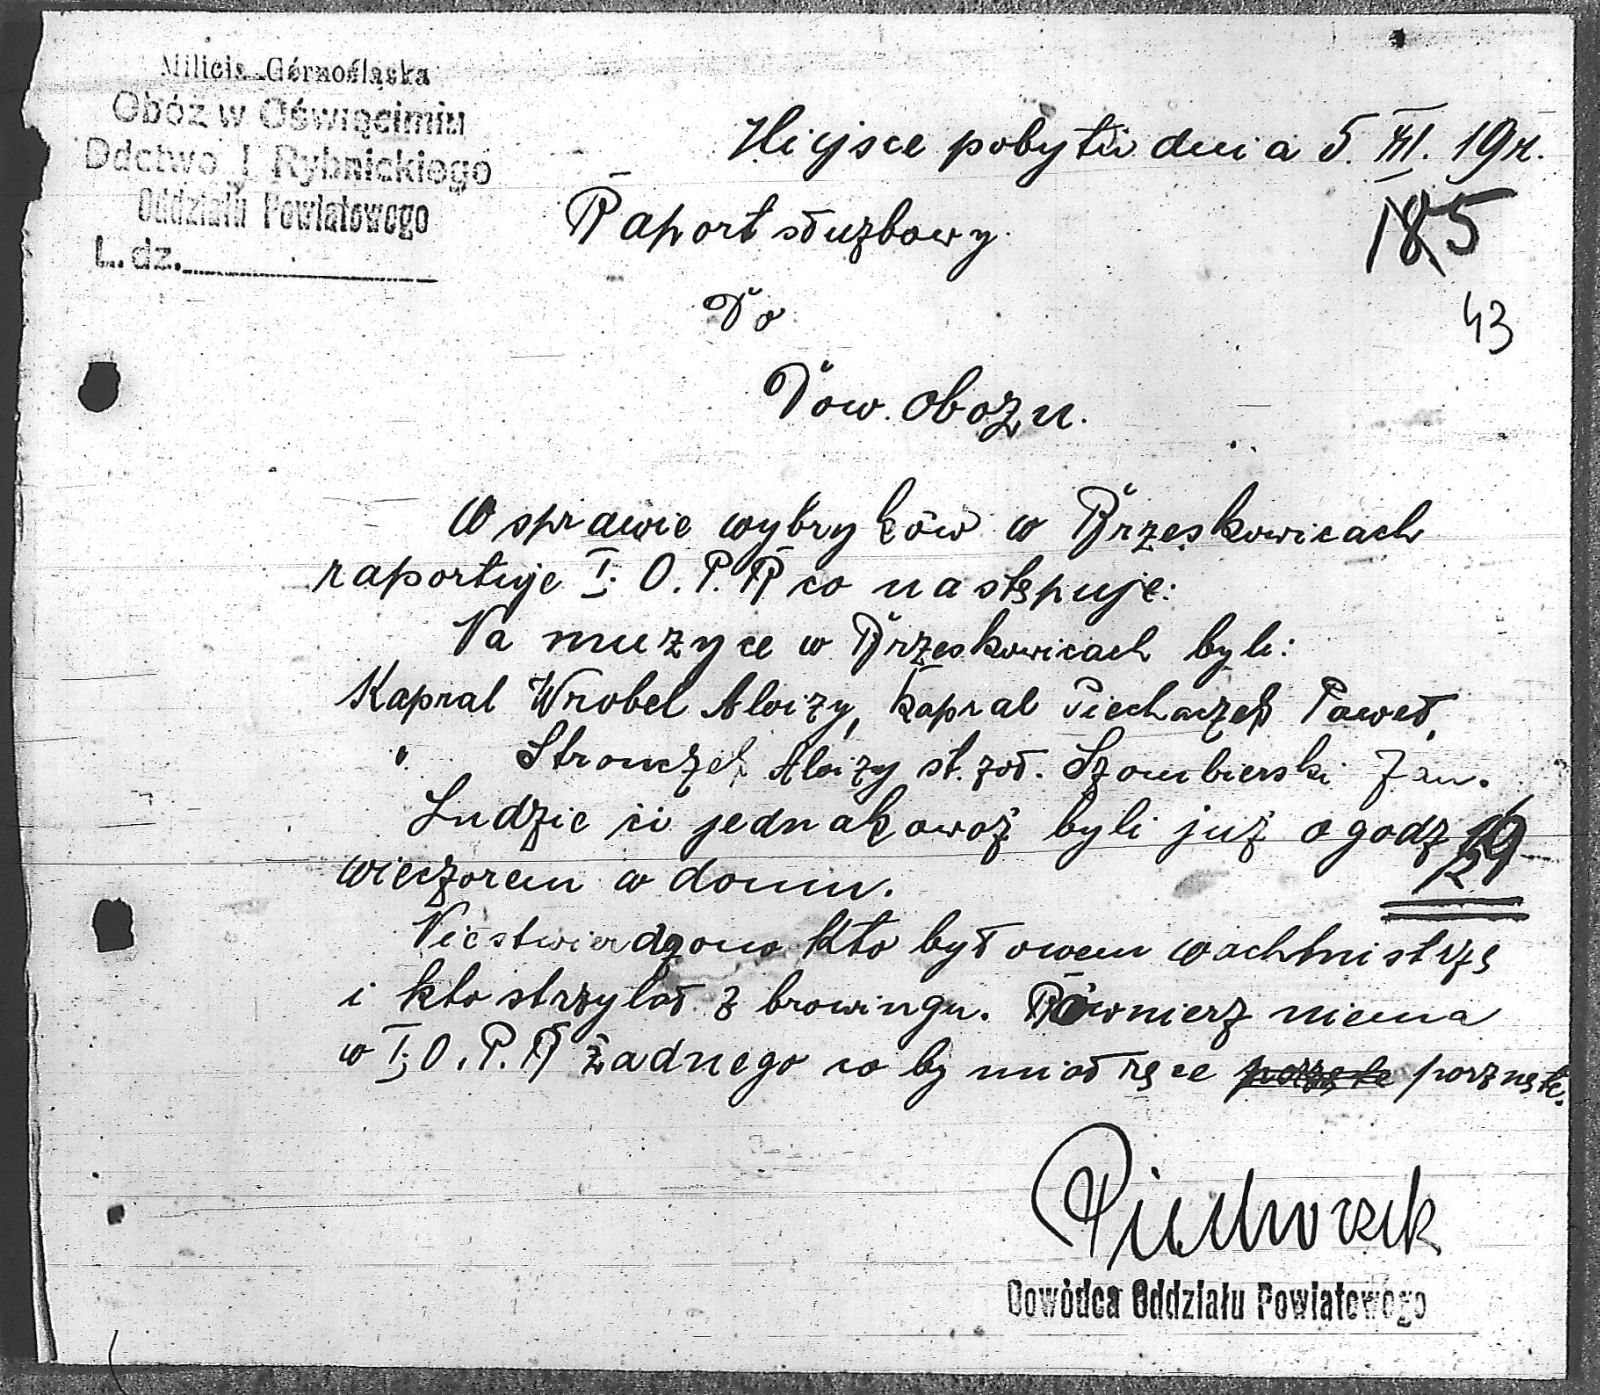 Milicja Górnośląska
Obóz w Oświęcimiu
Ddctwo I Rybnickiego
Oddziału Powiatowego
L. dz.
Miejsce pobytu dnia 5. XII. 19 r.
185
Raport służbowy.
43
Do
Dow. obozu.
W sprawie wybryków w Brzeskowicach
raportuje I. O. P. R co następuję:
Na muzyce w Brzeskowicach byli:
Kapral Wrobel Aloizy, kapral Piechaczek Paweł,
" Stronczek Aloizy st. żoł. Szombierski Jan.
Ludzie ci jednakowoż byli już o godz
wieczorem w domu.
Niestwierdzono kto był owem wachmistrzę
i kto strzylał z browingu. Równierz niema
w I. O. P. R żadnego co by miał ręce porznęte.
Dowódca Oddziału Powiatowego